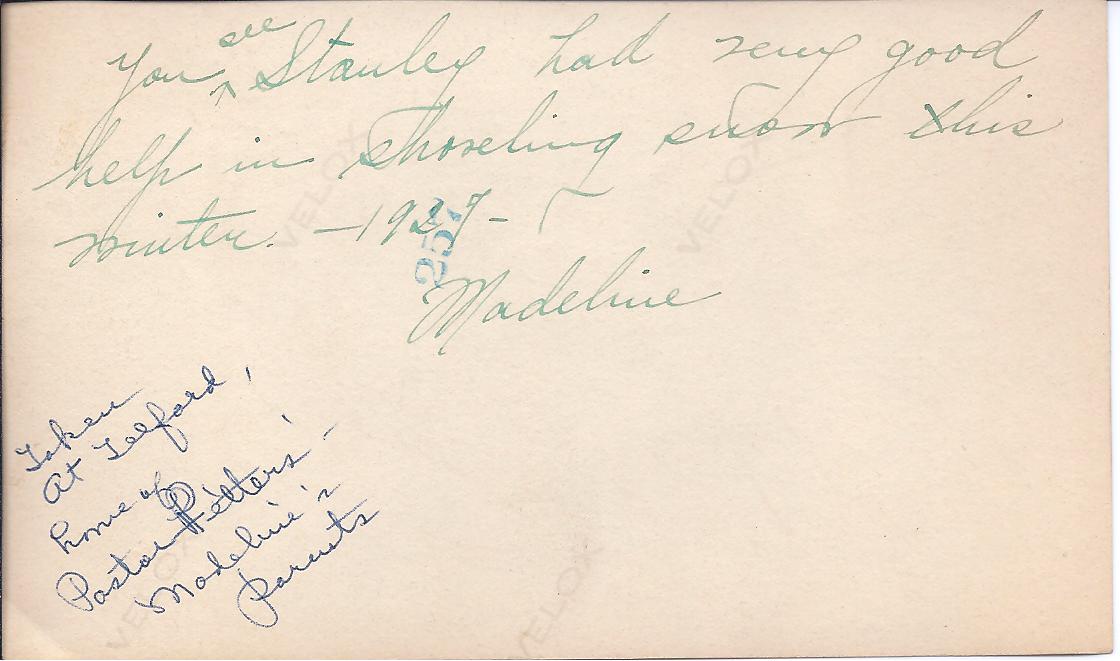 You see Stanley had very good
help in shoveling snow this
winter. - 1927 -
257
Madeline
Taken
At Telford,
home of
Pastor Fetters' -
Madeline's
parents
VELOX
VELOX
VELOX
VELOX